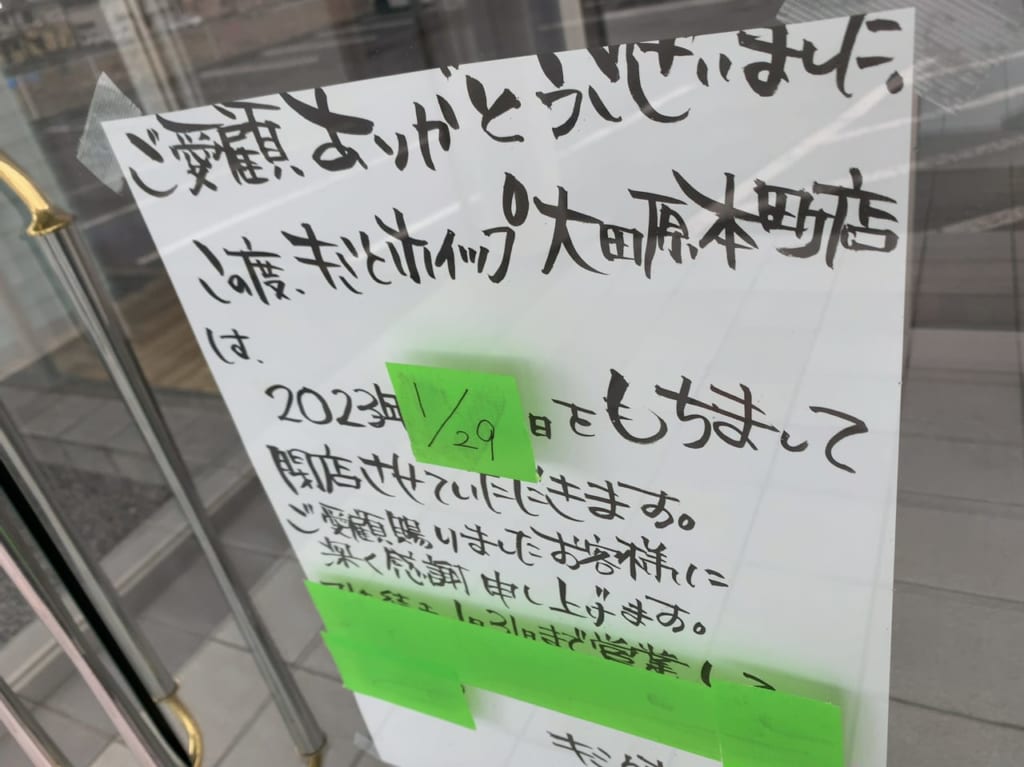 ご愛顧ありがとうございました。
この度、キミとホイップ大田原本町店
は、
2023年1/29日をもちまして
閉店させていただきます。
ご愛顧賜りましたお客様に
深く感謝申し上げます。
1月31日まで営業し